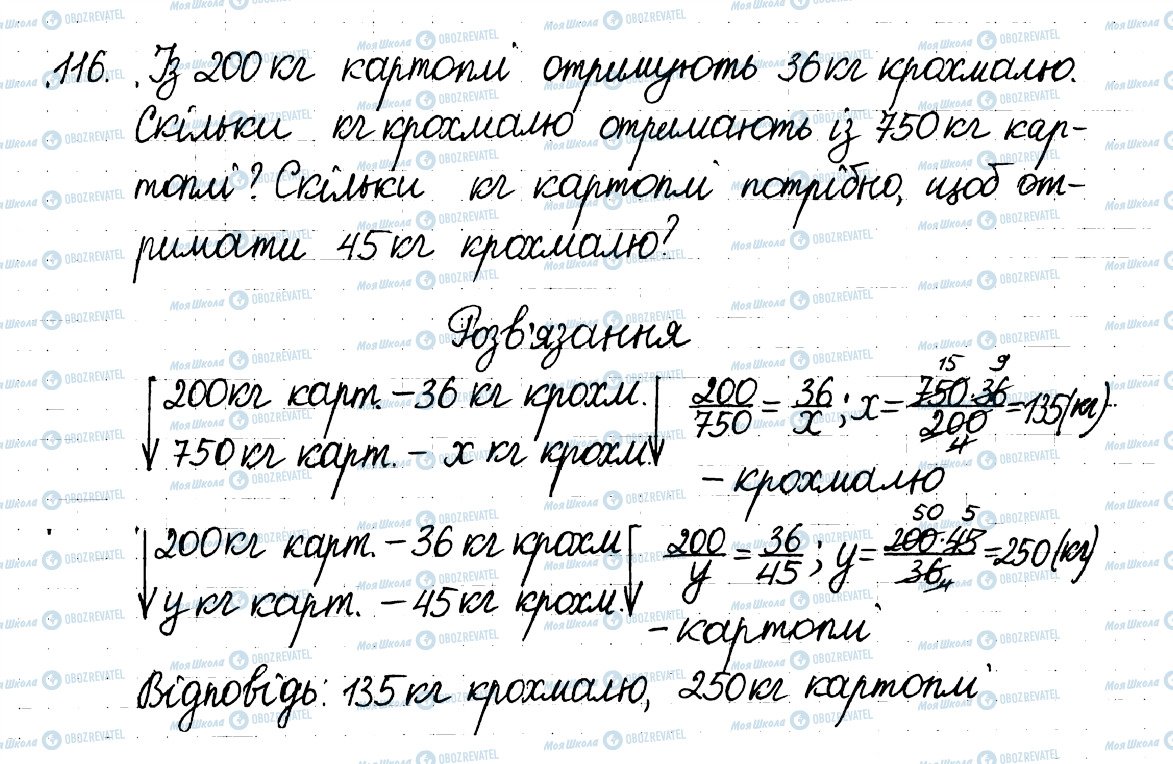 116. Із 200 кг картоплі отримують 36 кг крохмалю.
Скільки кг крохмалю отримають із 750 кг кар-
топлі? Скільки кг картоплі потрібно, щоб от-
римати 45 кг крохмалю?
Розв'язання
200 кг карт. – 36 кг крохм. 200/750 = 36/x; x = 750·36/200 = 135 (кг) 15 9 4
750 кг карт. – x кг крохм. – крохмалю
200 кг карт. – 36 кг крохм. 200/y = 36/45; y = 200·45/36 = 250 (кг) 50 5 4
y кг карт. – 45 кг крохм. – картоплі
Відповідь: 135 кг крохмалю, 250 кг картоплі.
Моя Школа OBOZREVATEL